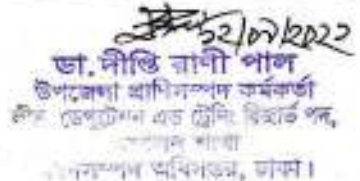 ১২/০৭/২০২২
ডা. দীপ্তি রাণী পাল
উপজেলা প্রাণিসম্পদ কর্মকর্তা
ডেপুটেশন এন্ড ট্রেনিং রিজার্ভ পদ,
শাখা
অধিদপ্তর, ঢাকা।